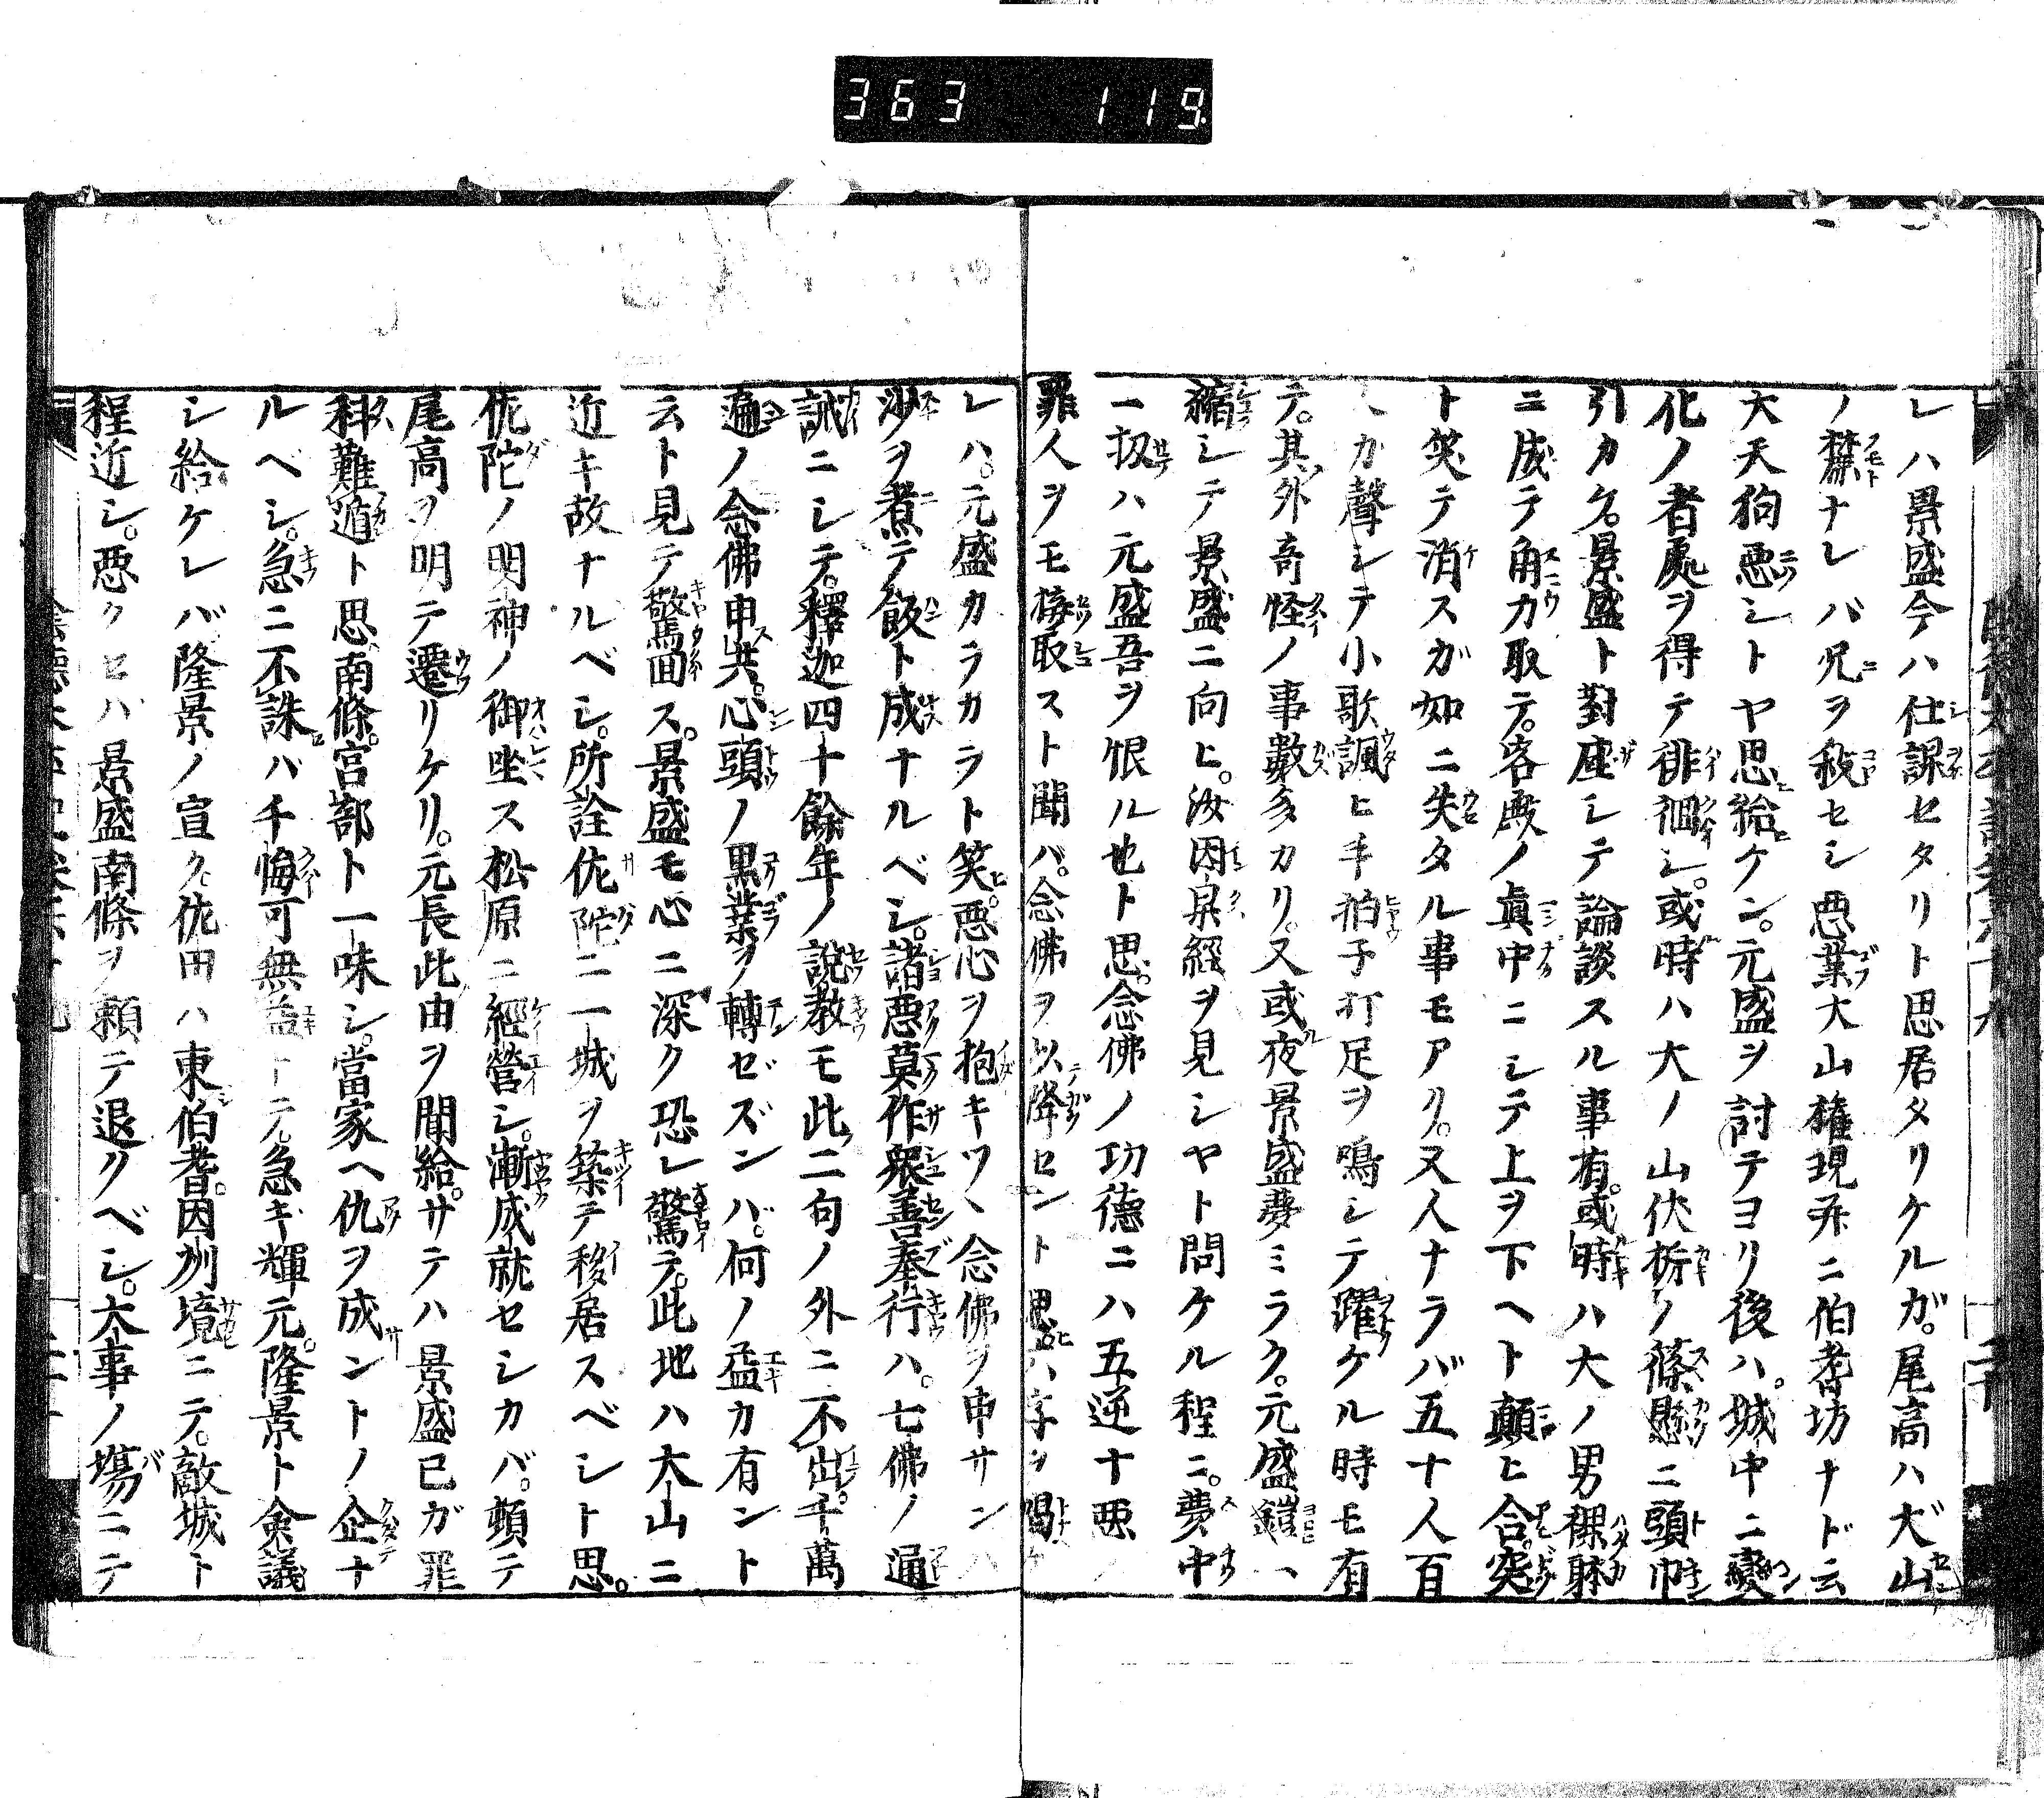 363 119
レハ景盛今ハ仕課セタリト思居タリケルガ。尾高ハ大山
ノ麓ナレバ兄ヲ殺セシ悪業大山権現并ニ伯耆坊ナド云
大天狗悪シトヤ思給ケン。元盛ヲ討テヨリ後ハ。城中ニ變
化ノ者處ヲ得テ徘徊シ。或時ハ大ノ山伏柿ノ篠懸ニ頭巾
引カケ。景盛ト對座シテ論談スル事有。或時ハ大ノ男裸躰
ニ成テ角力取テ。客殿ノ眞中ニシテ上ヲ下ヘト顛ヒ合。突
ト笑テ消スガ如ニ失タル事モアリ。又人ナラバ五十人百
人カ聲シテ小歌諷ヒ手拍子打足ヲ鳴シテ躍ケル時モ有
テ。其外奇怪ノ事數多カリ。又或夜景盛夢ミラク。元盛鎧ヽ
縮シテ景盛ニ向ヒ。汝因果經ヲ見シヤト問ケル程ニ。夢中
一扱ハ元盛吾ヲ恨ル也ト思。念佛ノ功德ニハ五逆十悪
罪人ヲモ接取スト聞バ。念佛ヲ以降セント思ヒ字ヲ唱ケ
レハ。元盛カラカラト笑。悪心ヲ抱キツヽ念佛ヲ申サンハ
沙ヲ煮テ飯ト成ナルベシ。諸悪莫作衆善奉行ハ。七佛ノ通
誡ニシテ。釋迦四十餘年ノ說教モ此二句ノ外ニ不出。千萬
遍ノ念佛申共。心頭ノ黒業ヲ轉ゼズンバ。何ノ益カ有ント
云ト見テ驚面ス。景盛モ心ニ深ク恐レ驚テ。此地ハ大山ニ
近キ故ナルベシ。所詮佐陀ニ一城ヲ築テ移居スベシト思。
佐陀ノ明神ノ御坐ス松原ニ經營シ。漸成就セシカバ。頓テ
尾高ヲ明テ遷リケリ。元長此由ヲ聞給。サテハ景盛已ガ罪
科難遁ト思。南條。宮部ト一味シ。當家ヘ仇ヲ成ントノ企ナ
ルベシ。急ニ不誅バ千悔可無益トテ。急ギ輝元。隆景ト僉議
シ給ケレバ隆景ノ宣ク佐田ハ東伯耆。因州境ニテ。敵城ト
程近シ。悪クセバ景盛南條ヲ頼テ退クベシ。大事ノ塲ニテ